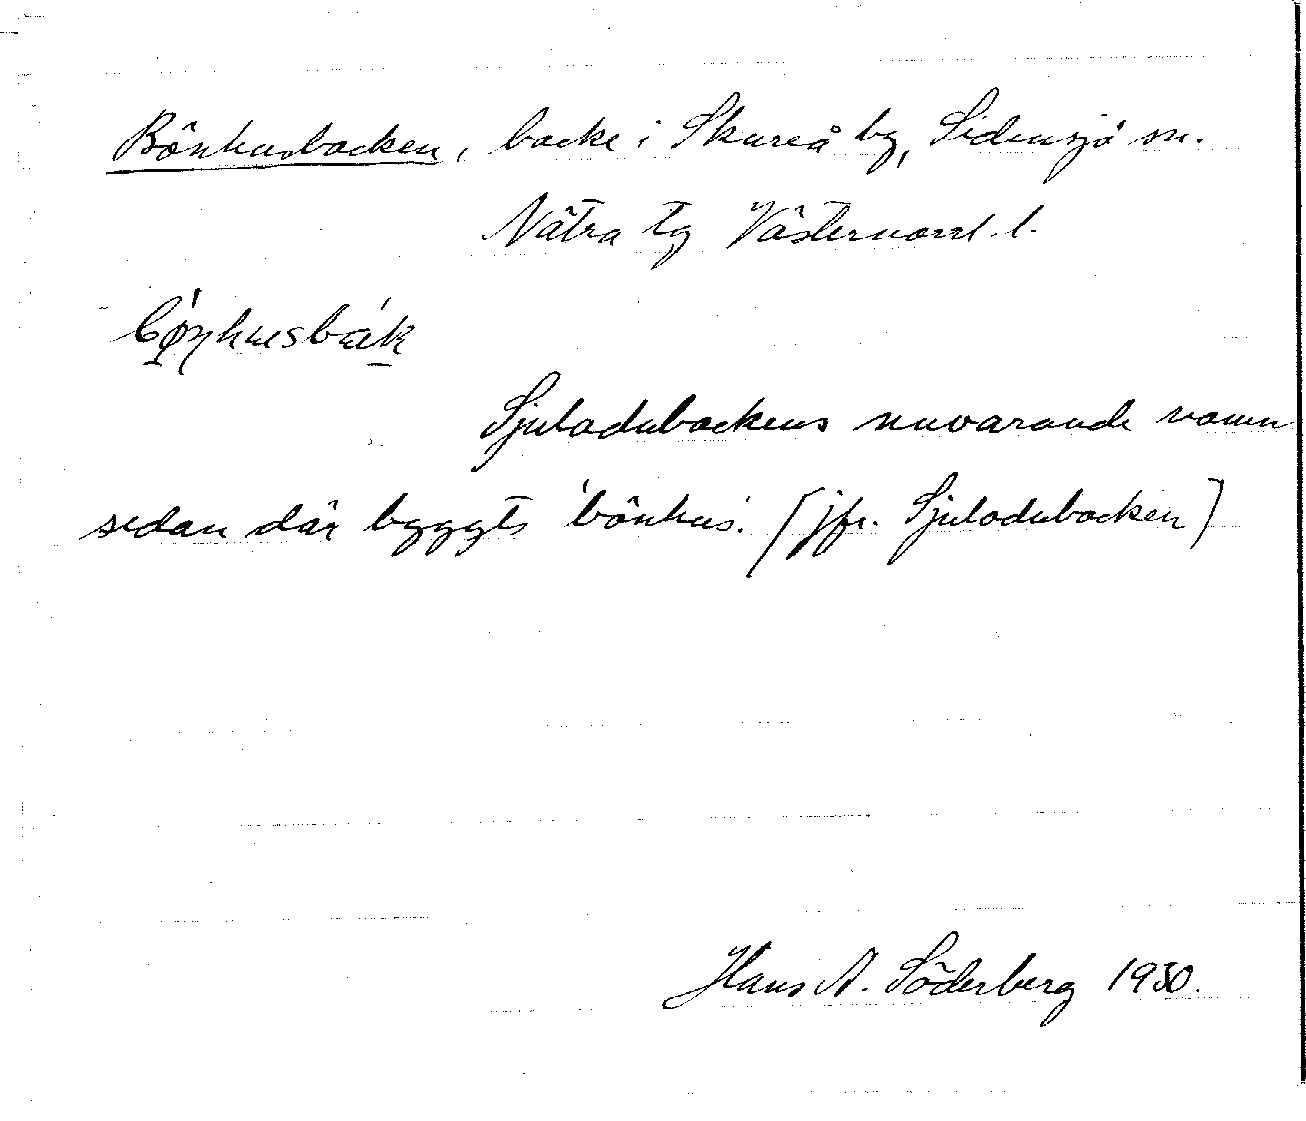 Bönhusbacken, backe i Skureå by, Sidensjö sn.
Nätra tg Västernorrl. l.
Sjuladubackens nuvarande namn
sedan där byggts 'bönhus'. (jfr. Sjuladubacken)
Hans A. Söderberg 1930.